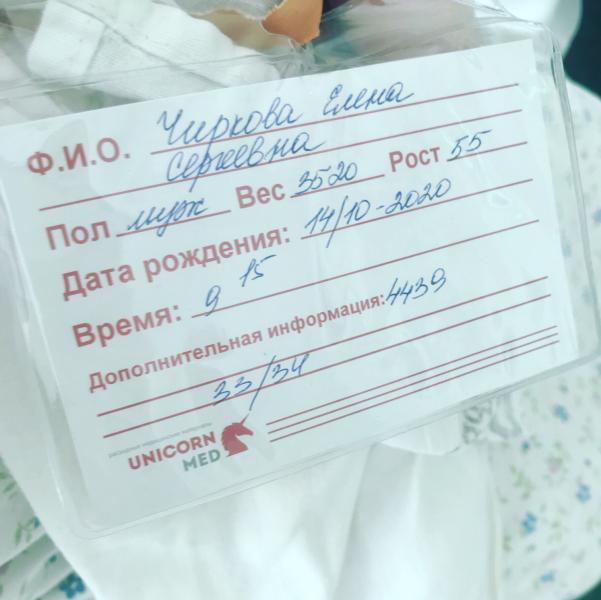 Ф.И.О. Чиркова Елена
Сергеевна
Пол муж Вес 3520 Рост 55
Дата рождения: 14/10-2020
Время: 9 15
Дополнительная информация: 4439
33/34
расходные медицинские материалы
UNICORN
MED